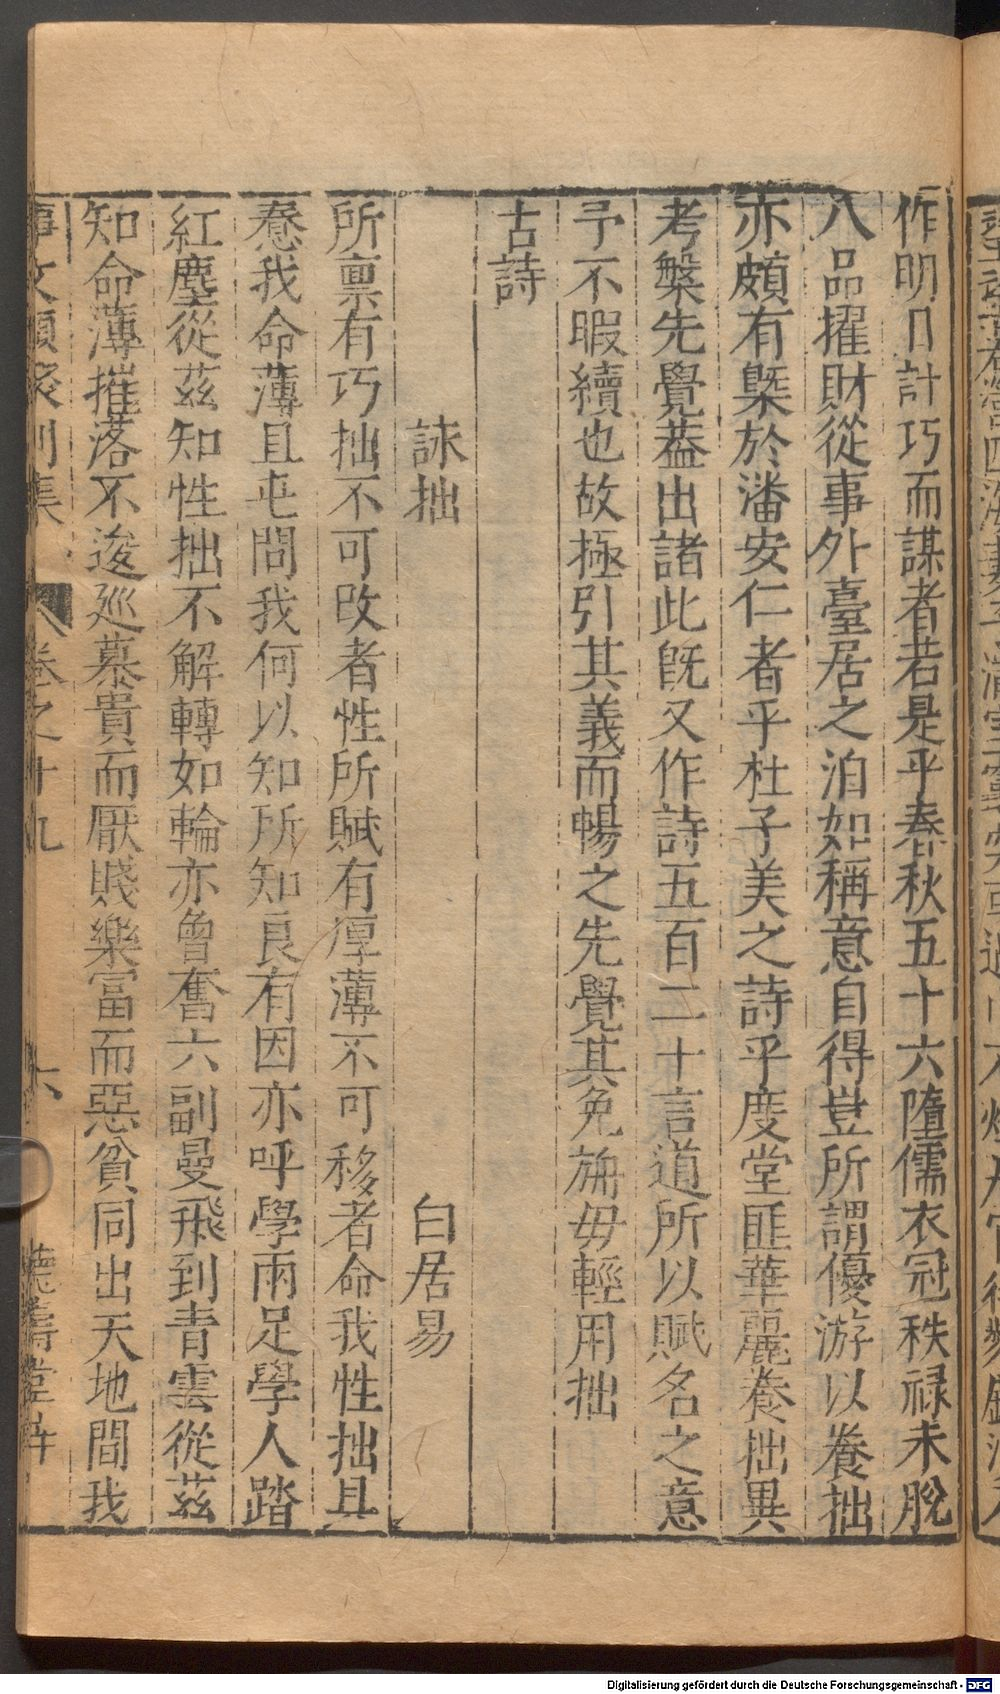 作明日計巧而謀者若是乎春秋五十六墮儒衣冠秩祿未脫
八品擢財從事外臺居之泊如稱意自得豈所謂優游以養拙
亦頗有槩於潘安仁者乎杜子美之詩乎度堂匪華麗養拙異
考槃先覺葢出諸此旣又作詩五百二十言道所以賦名之意
予不暇續也故極引其義而暢之先覺其免旃毋輕用拙
古詩
詠拙 白居易
所禀有巧拙不可攺者性所賦有厚薄不可移者命我性拙且
惷我命薄且屯問我何以知所知良有因亦呼學兩足學人踏
紅塵從茲知性拙不解轉如輪亦曾奮六翮曼飛到青雲從茲
知命薄摧落不逡廵慕貴而厭賤樂富而惡貧同出天地間我
事文類聚別集 卷之十九 六
Digitalisierung gefördert durch die Deutsche Forschungsgemeinschaft - DFG